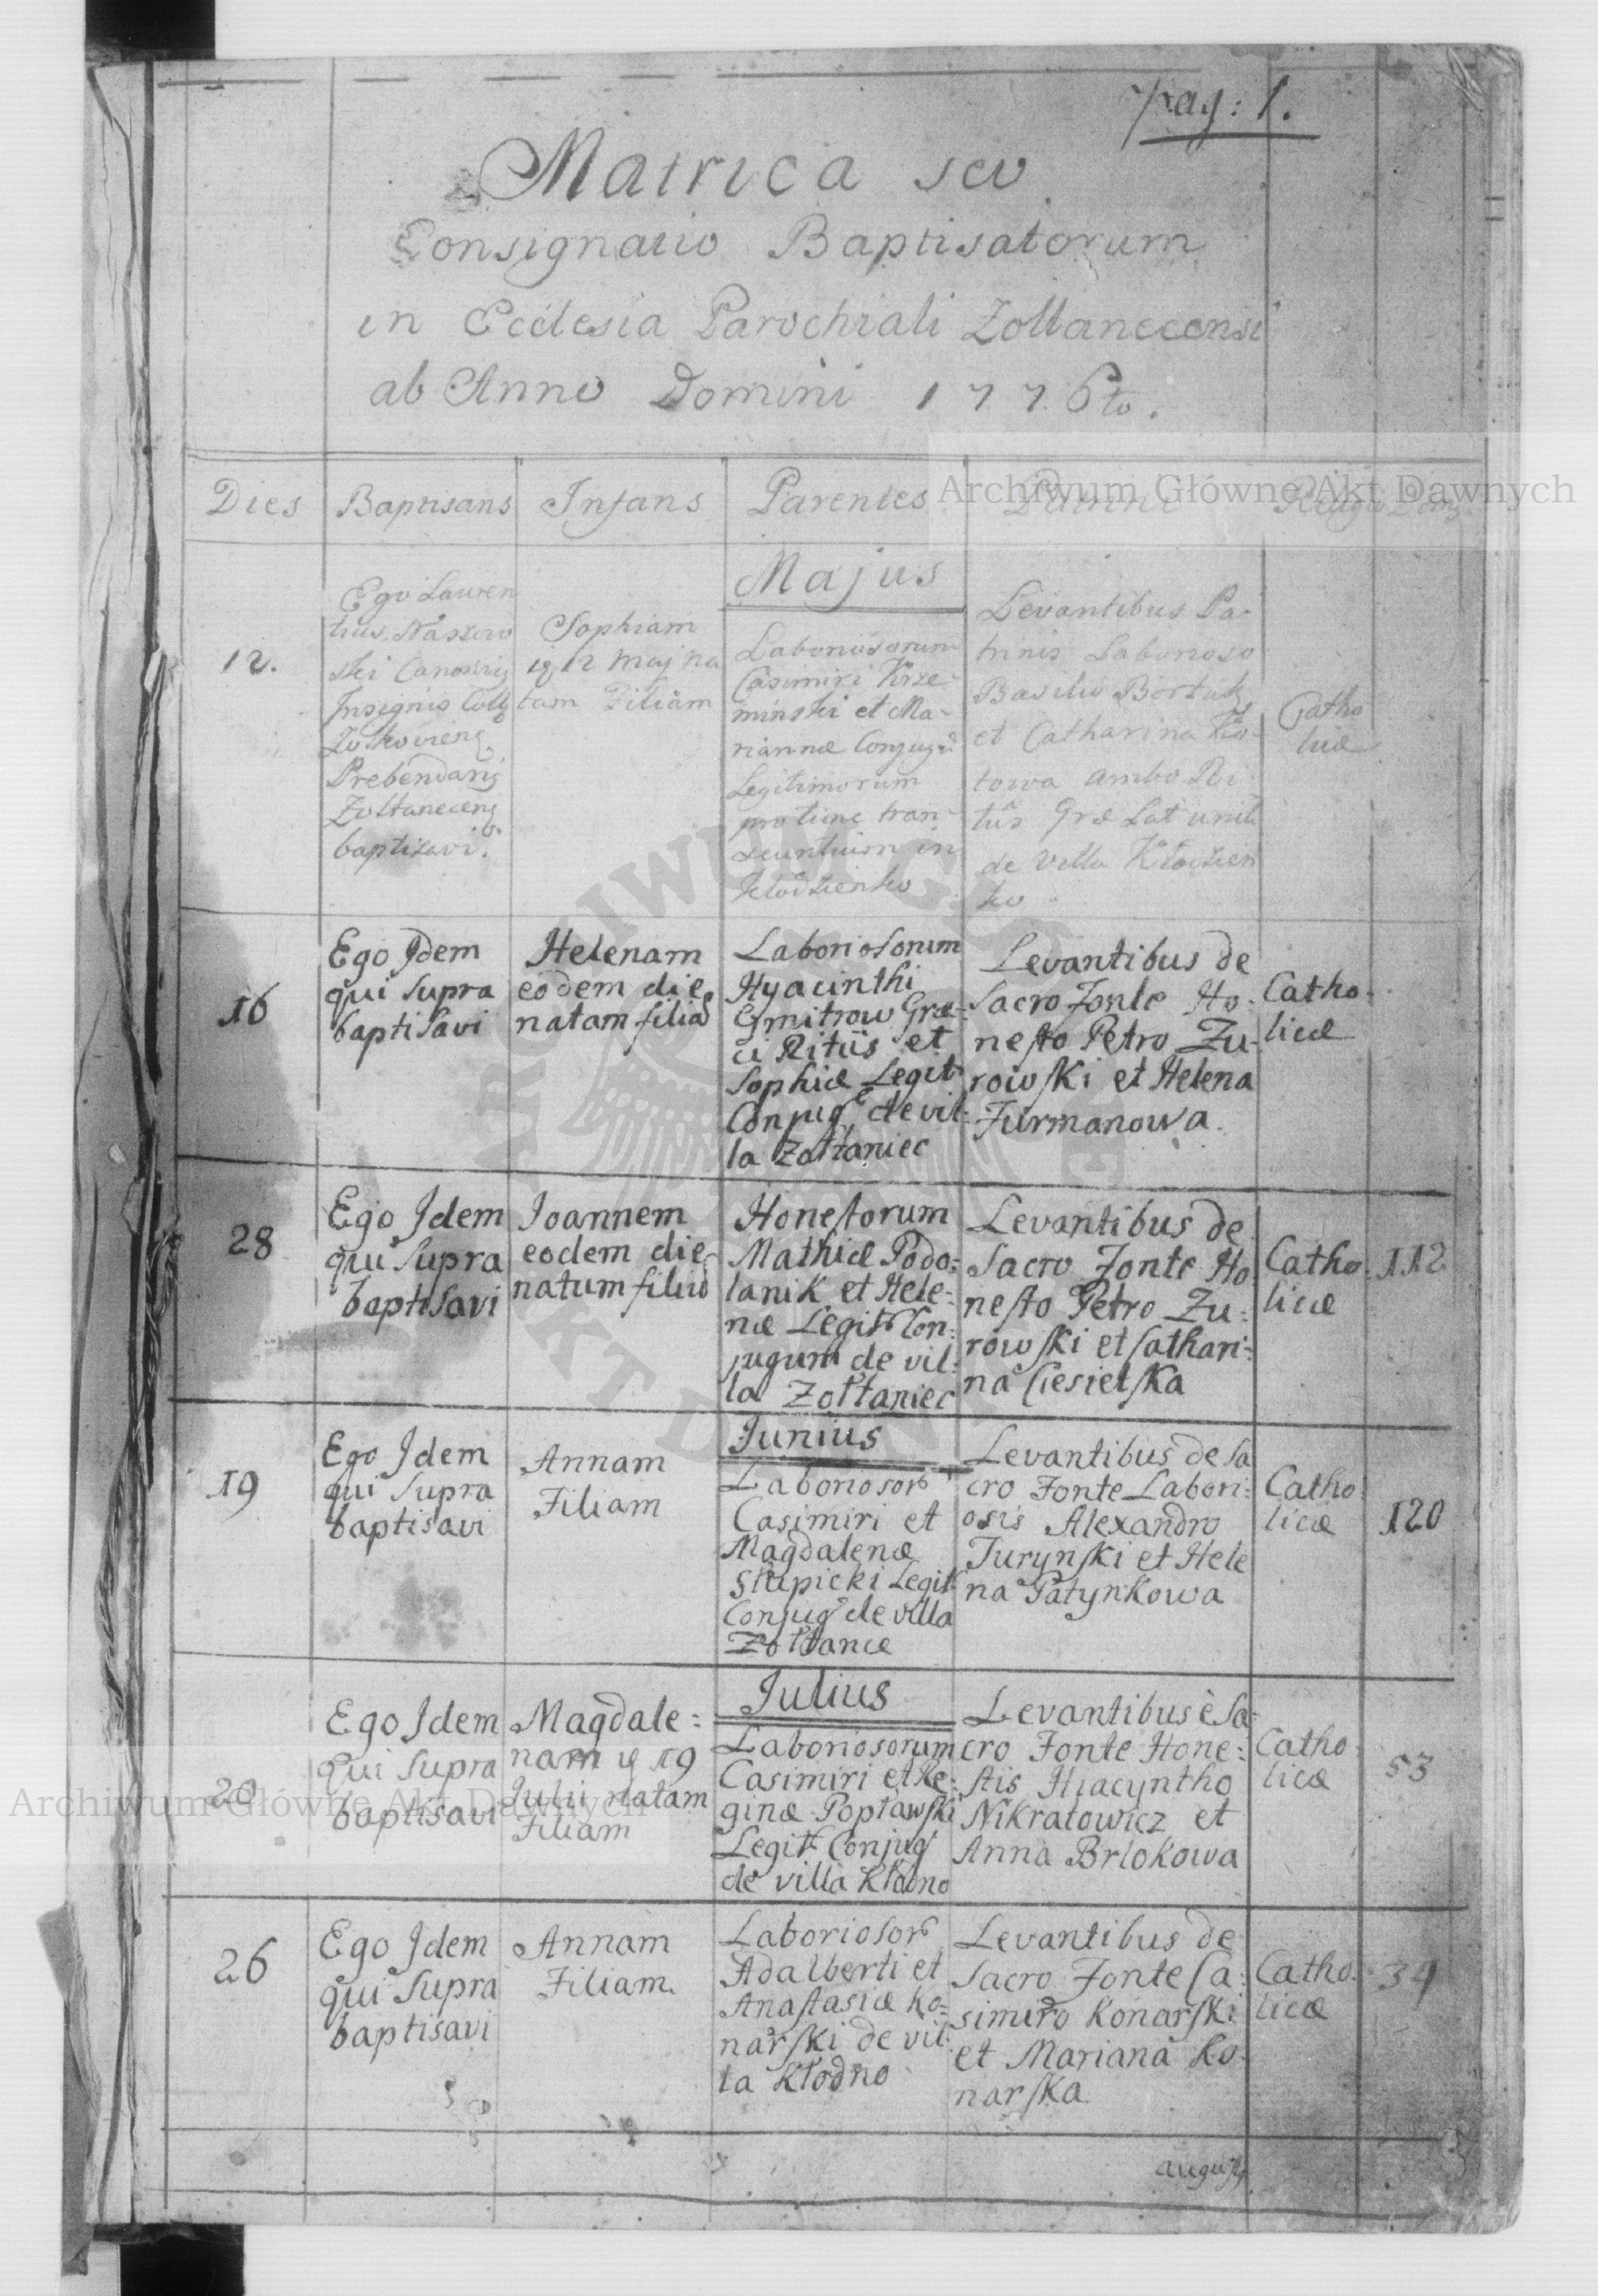 pag: 1.
Matrica seu
Consignatio Baptisatorum
in Ecclesia Parochiali Zoltanecensi
ab Anno Domini 1776to.
Dies
Baptisans
Infans
Parentes
Patrini
Religio
Archiwum Główne Akt Dawnych
Majus
12.
Ego Lauren
tius Naszow
ski Canonig
Insignis Coll
Zolkovieng
Prebendarig
Zoltaneceng
baptisavi.
Sophiam
12 maj na
tam Filiam
Laboriosorum
Casimiri Krze-
minski et Ma-
riannæ Conjug
Legitimorum
pro tunc tran-
seuntium in
Kłodzienko
Levantibus Pa-
trinis Laborioso
Basilio
et Catharina Ko-
towa ambo Ri
tus Græ Lat unit
de villa Kłodzien
ko
Catho
licæ
16
Ego Idem
qui Supra
baptisavi
Helenam
eodem die
natam filia
Laboriosorum
Hyacinthi
Gmitrow Græ-
ci Ritus et
Sophiæ Legit
Conjug de vil-
la Zołtaniec
Levantibus de
Sacro Fonte Ho-
nesto Petro Zu-
rowski et Helena
Furmanowa.
Catho-
licæ
28
Ego Idem
qui Supra
baptisavi
Joannem
eodem die
natum filiu
Honestorum
Mathiæ Podo=
lanik et Hele=
næ Legit Con=
jugum de vil=
la Zołtaniec
Levantibus de
Sacro Fonte Ho
nesto Petro Zu-
rowski et Cathari=
na Ciesielska
Catho
licæ
112
Junius
19
Ego Idem
qui Supra
baptisavi
Annam
Filiam
Laboriosor
Casimiri et
Magdalenæ
Słupicki Legit
Conjug de villa
Zołtance
Levantibus de Sa
cro Fonte Labori=
osis Alexandro
Turynski et Hele
na Patynkowa
Catho
licæ
120
Julius
20
Ego Idem
Qui Supra
baptisavi
Magdale=
nam 19
Julii natam
Filiam
Laboriosorum
Casimiri et Re=
ginæ Popławski
Legit Conjug
de villa Kłodno
Levantibus è Sa=
cro Fonte Hone=
stis Hiacyntho
Nikratowicz et
Anna Brlokowa
Catho
licæ
53
Archiwum Główne Akt Dawnych
26
Ego Idem
qui Supra
baptisavi
Annam
Filiam.
Laboriosor
Adalberti et
Anastasiæ Ko=
narski de vil
la Kłodno
Levantibus de
Sacro Fonte Ca=
simiro Konarski
et Mariana Ko-
narska.
Catho
licæ
34